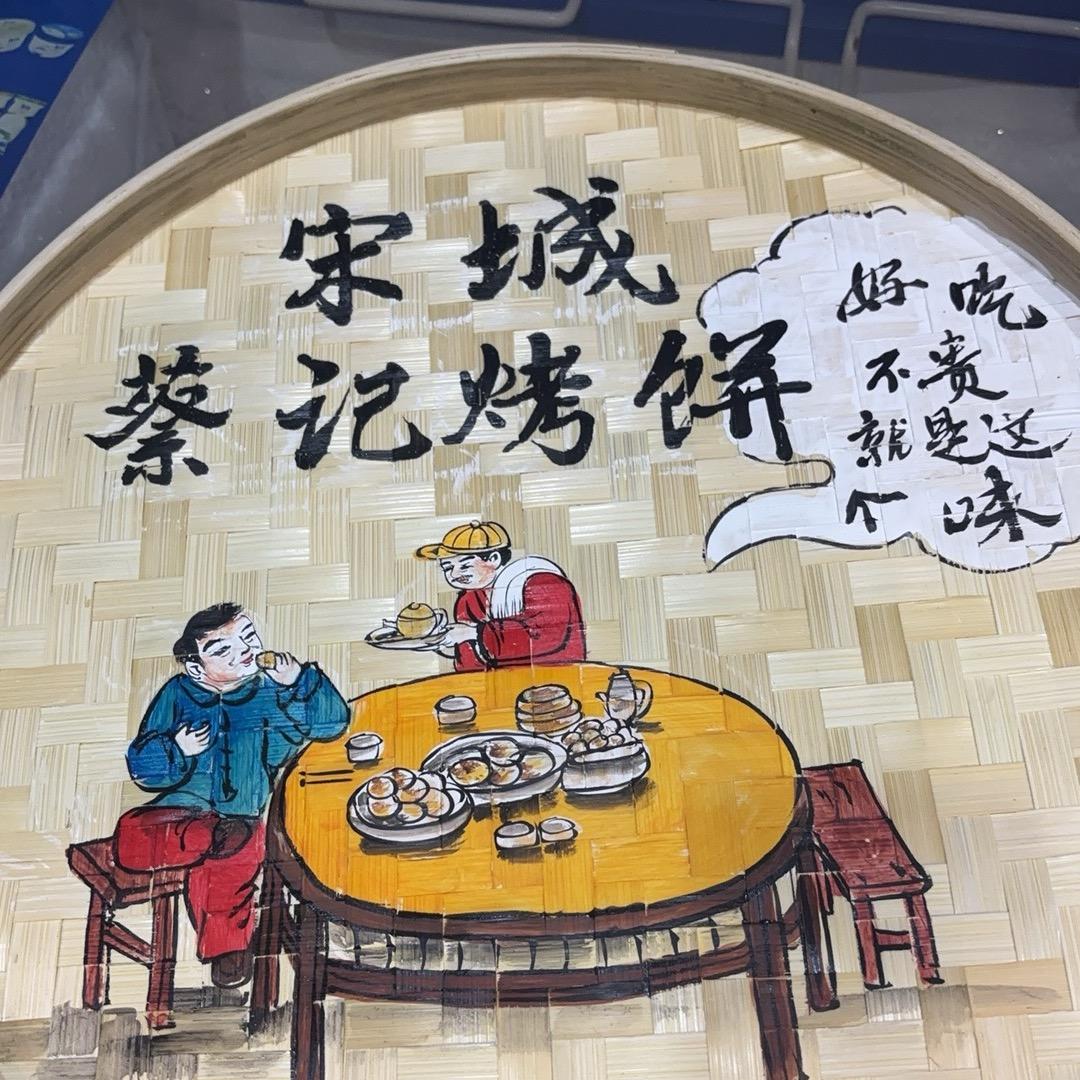 宋城
蔡记烤饼
好吃
不贵
就是这
个味